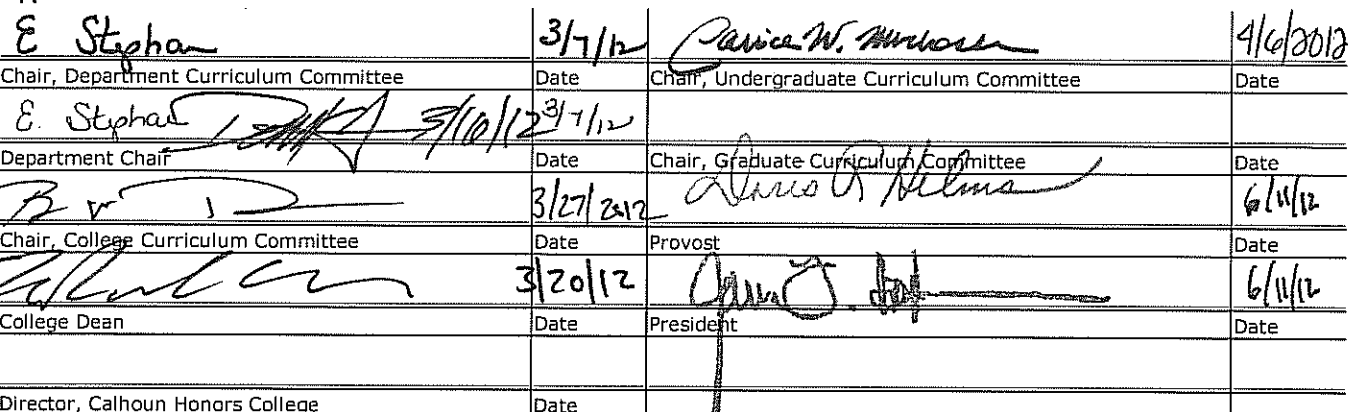 E Stephan 3/7/12 Janice W. Murdoch 4/6/2012
Chair, Department Curriculum Committee Date Chair, Undergraduate Curriculum Committee Date
E. Stephan 3/16/12 3/7/12
Department Chair Date Chair, Graduate Curriculum Committee Date
3/27/2012 6/11/12
Chair, College Curriculum Committee Date Provost Date
3/20/12 6/11/12
College Dean Date President Date
Director, Calhoun Honors College Date